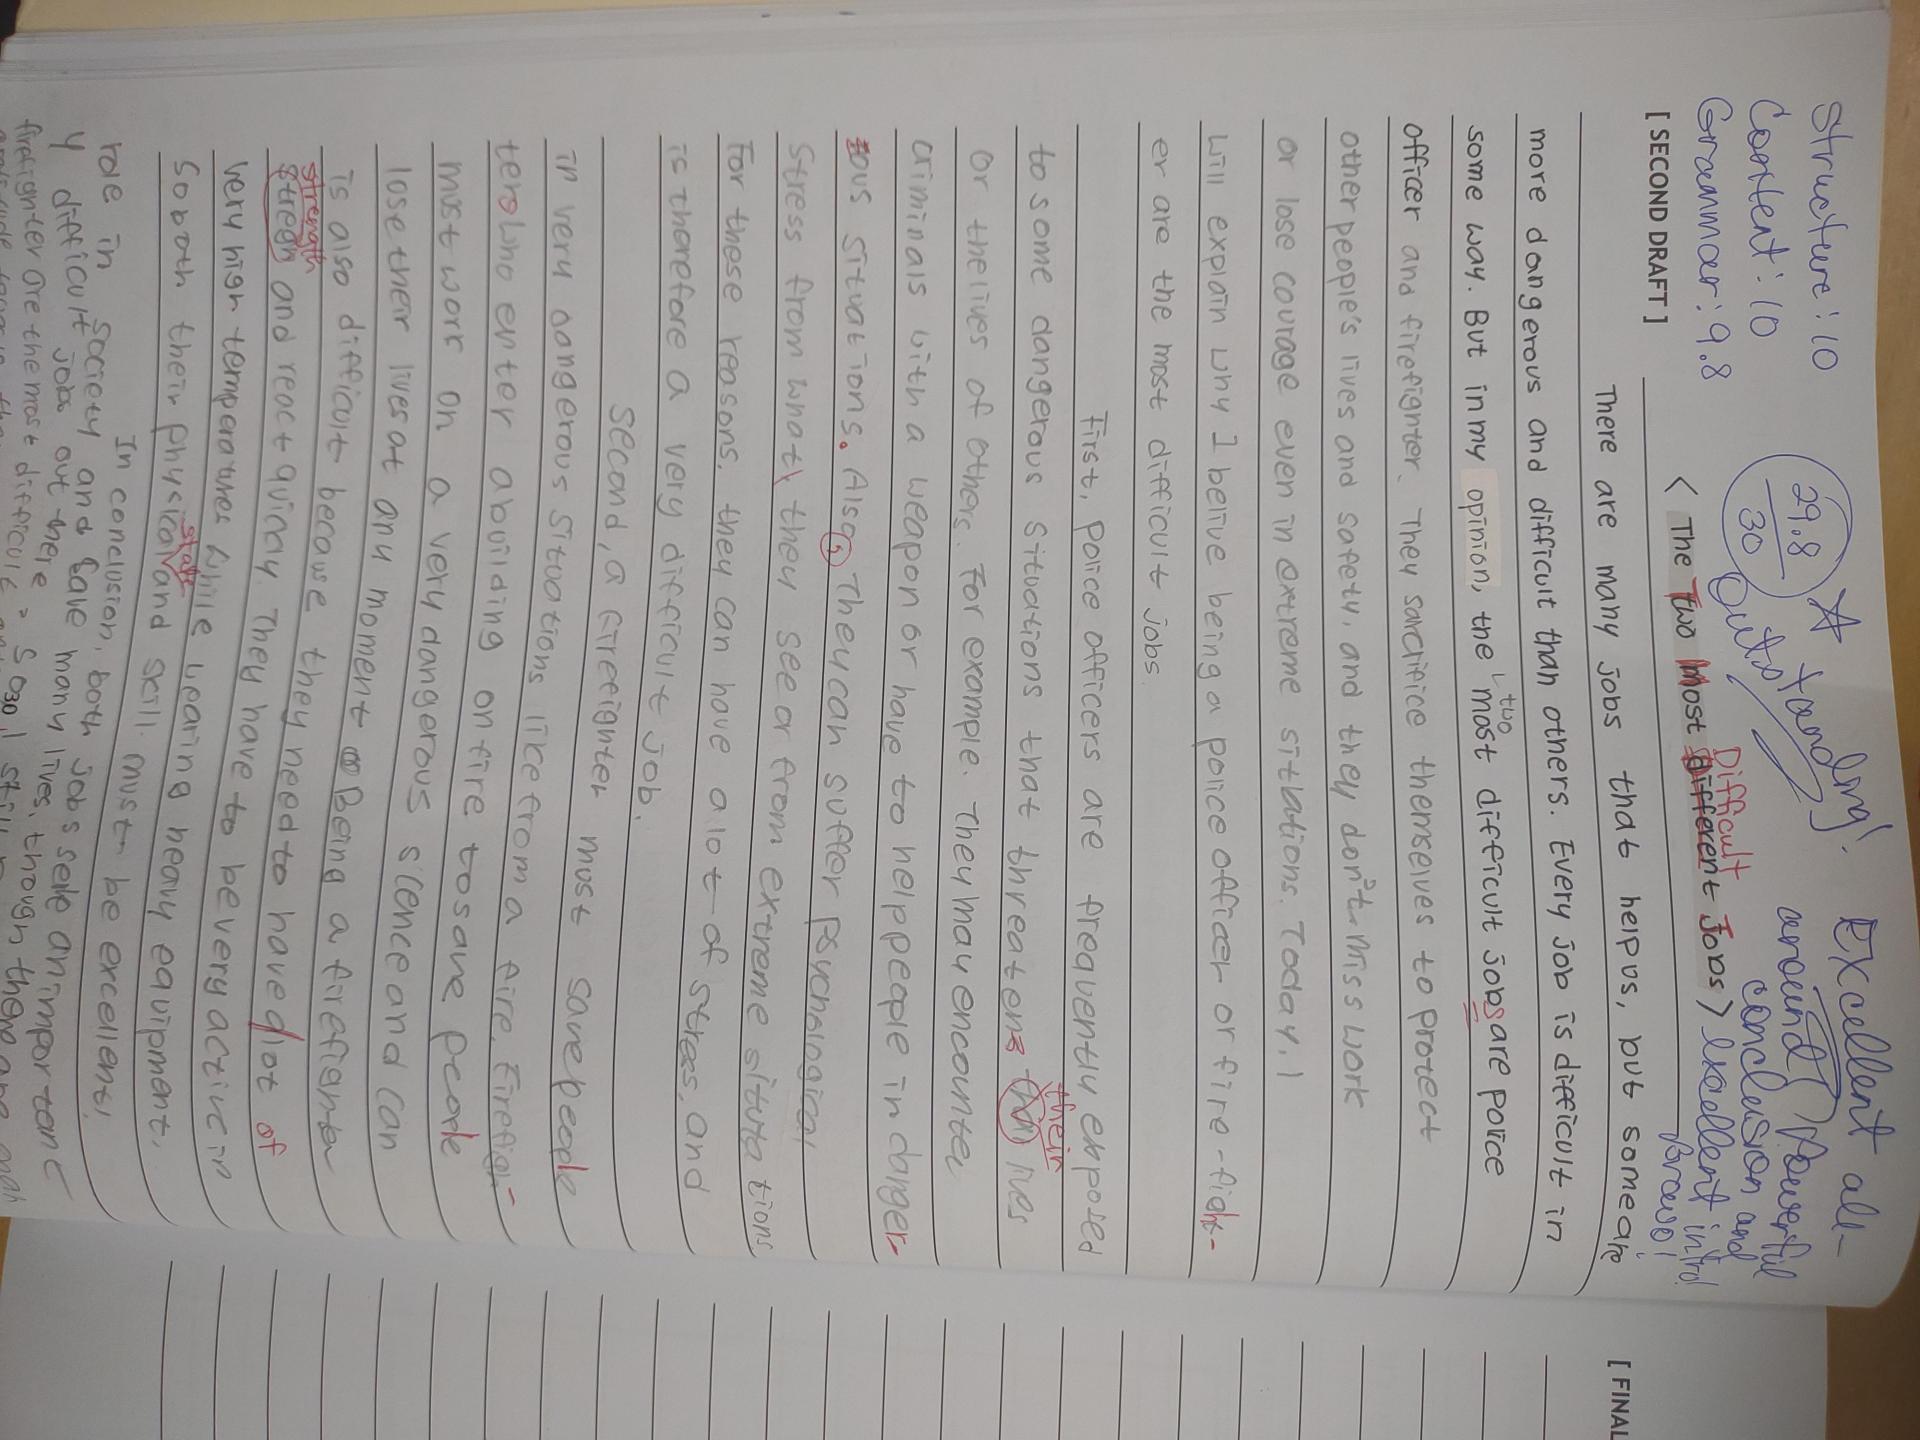 Structure: 10
Content: 10
Grammar: 9.8
29.8
30
Outstanding!
Excellent all-
around! Powerful
conclusion and
excellent intro!
Bravo!
[SECOND DRAFT]
Difficult
< The Two Most different Jobs >
There are many jobs that help us, but some are
more dangerous and difficult than others. Every job is difficult in
two
some way. But in my opinion, the most difficult jobs are police
officer and firefighter. They sarcifice themselves to protect
other people's lives and safety, and they don't miss work
or lose courage even in extreme sitations. Today, I
will explain why I belive being a police officer or fire-fight-
er are the most difficult jobs.
First, police officers are frequently exposed
their
to some dangerous situations that threatens thir lives
or the lives of others. For example. They may encounter
criminals with a weapon or have to help people in danger-
ous situations. Also, They can suffer psychological
stress from what they see or from extreme situtations
For these reasons, they can have a lot of stress, and
is therefore a very difficult job.
Second, a fireeigter must save people
in very dangerous situations like from a fire. Firefigh-
ters who enter a building on fire to save people
must work on a very dangerous silence and can
lose their lives at any moment Being a firefighter
is also difficult because they need to have a lot of
strength
stregh and react quicky. They have to be very active in
very high temperatures while wearing heavy equipment,
state
So both their physical and skill must be excellent,
In conclusion, both jobs selle an important
role in society and save many lives, though there are many
difficult jobs out there
firefighter are the most difficult